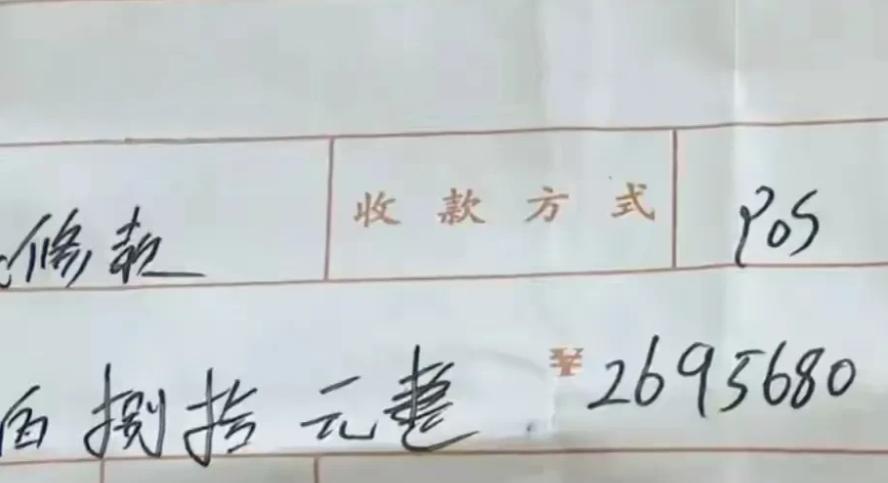 修款 收款方式 POS
佰捌拾元整 ¥2695680